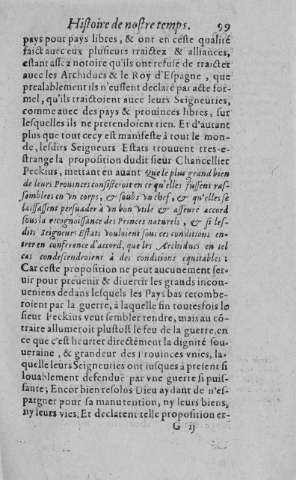 Histoire de nostre temps. 99
pays pour pays libres, & ont en ceste qualité
faict auec eux plusieurs traictez & alliances,
estant assez notoire qu'ils ont refusé de traicter
auec les Archiducs & le Roy d'Espagne, que
prealablement ils n'eussent declaré par acte for-
mel, qu'ils traictoient auec leurs Seigneuries,
comme auec des pays & prouinces libres, sur
lesquelles ils ne pretendoient rien. Et d'autant
plus que tout cecy est manifeste à tout le mon-
de, lesdits Seigneurs Estats trouuent tres-e-
strange la proposition dudit sieur Chancellier
Peckius, mettant en auant Que le plus grand bien
de leurs Prouinces consisteroit en ce qu'elles fussent ras-
semblees en vn corps, & soubs vn chef, & qu'elles se
laissassent persuader à vn bon vtile & asseuré accord
sous la recognoissance des Princes naturels, & si les-
dits Seigneurs Estats vouloient sous ces conditions en-
trer en conference d'accord, que les Archiducs en tel
cas condescendroient à des conditions equitables:
Car ceste proposition ne peut aucunement ser-
uir pour preuenir & diuertir les grands incon-
ueniens dedans lesquels les Pays bas retombe-
roient par la guerre, à laquelle fin toutesfois le
sieur Peckius veut sembler tendre, mais au cõ-
traire allumeroit plustost le feu de la guerre, en
ce que c'est heurter directément la dignité sou-
ueraine, & grandeur des Prouinces vnies, la-
quelle leurs Seigneuries ont iusques à present si
louablement defenduë par vne guerre si puis-
sante; Encor bien resolus Dieu aydant de n'es-
pargner pour sa manutention, ny leurs biens,
ny leurs vies. Et declarent telle proposition er-
G ij